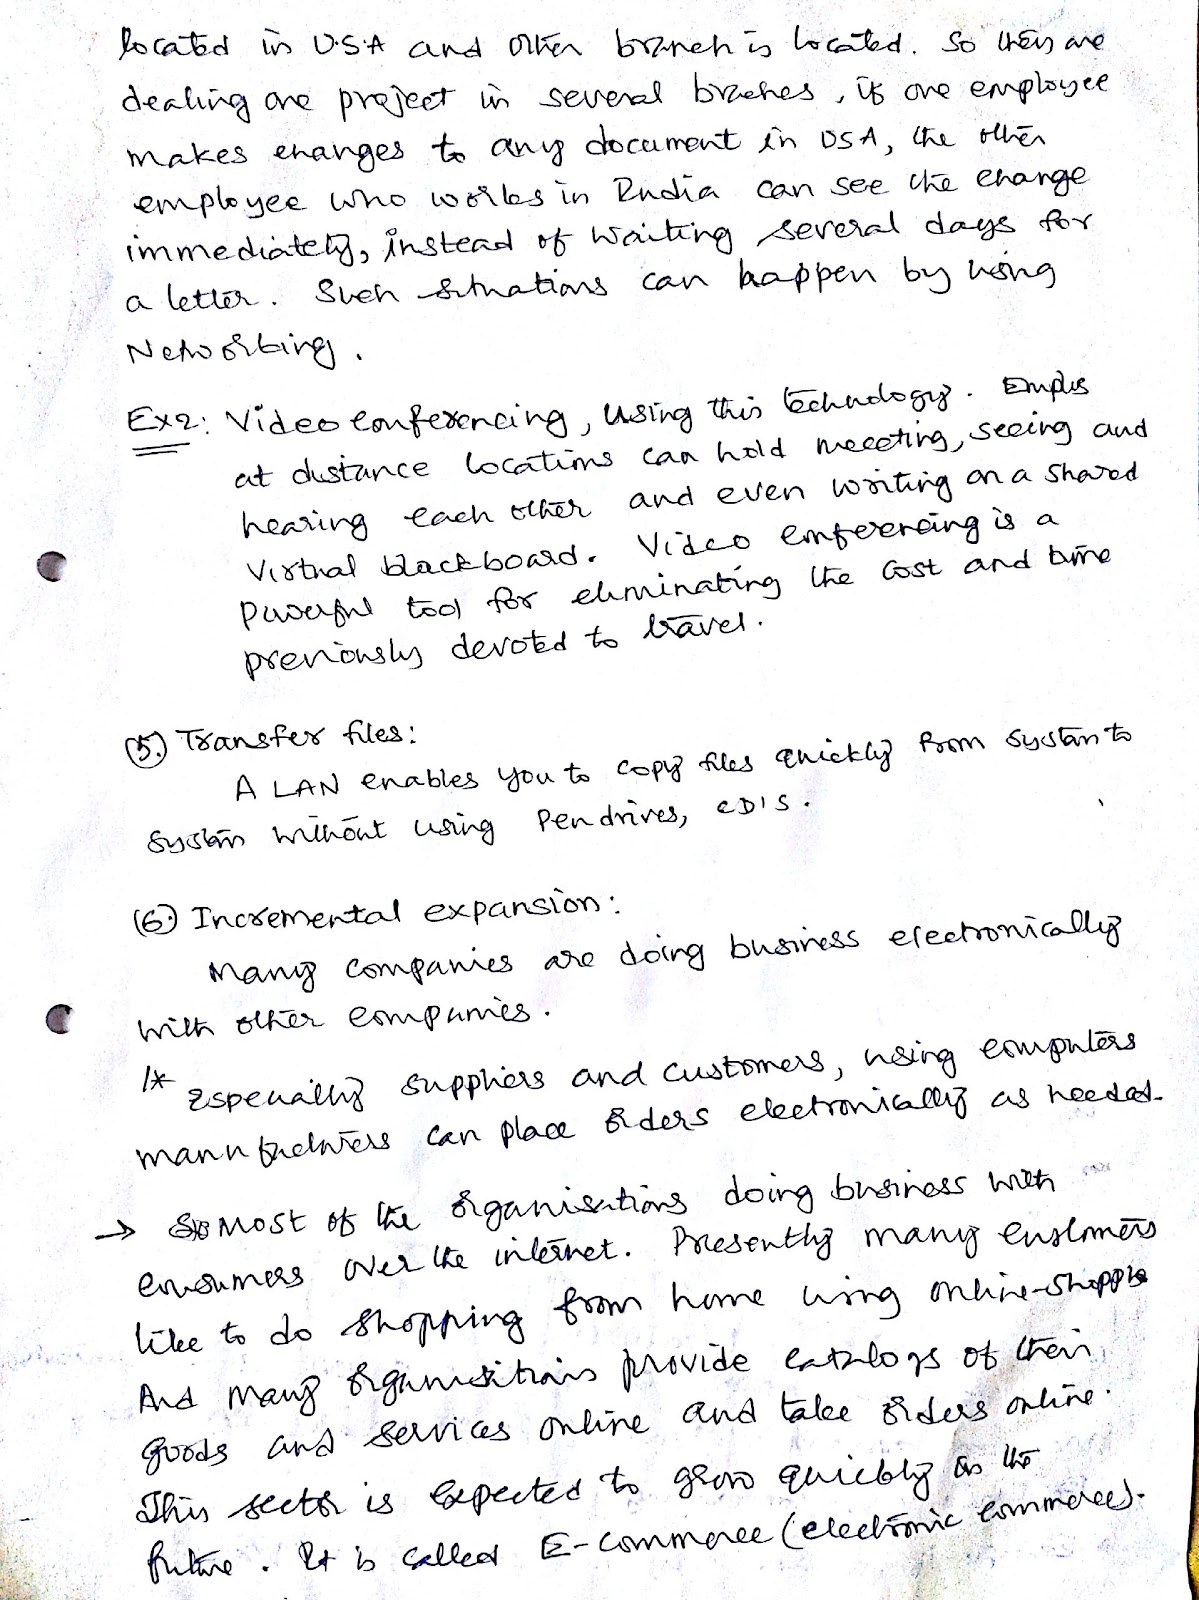 located in U.S.A and other branch is located. So they are
dealing one project in several braches, if one employee
makes changes to any document in USA, the other
employee who works in India can see the change
immediately, instead of waiting several days for
a letter. Such situations can happen by using
Networking.
Ex2: Video conferencing, using this technology. Emplys
at distance locations can hold meeeting, seeing and
hearing each other and even writing on a shared
Virtual blackboard. Video conferencing is a
Powerful tool for eliminating the cost and time
previously devoted to travel.
(5.) Transfer files:
A LAN enables you to copy files quickly from system to
system without using Pendrives, CD'S.
(6.) Incremental expansion:
Many companies are doing business electronically
with other companies.
1* Especially suppliers and customers, using computers
manufacturers can place orders electronically as needed.
→ Most of the organisations doing business with
consumers over the internet. Presently many customers
like to do shopping from home using online-shopping
And many organisations provide catalogs of their
goods and services online and take orders online.
This sector is expected to grow quickly in the
future. It is called E-commerce (electronic commerce).